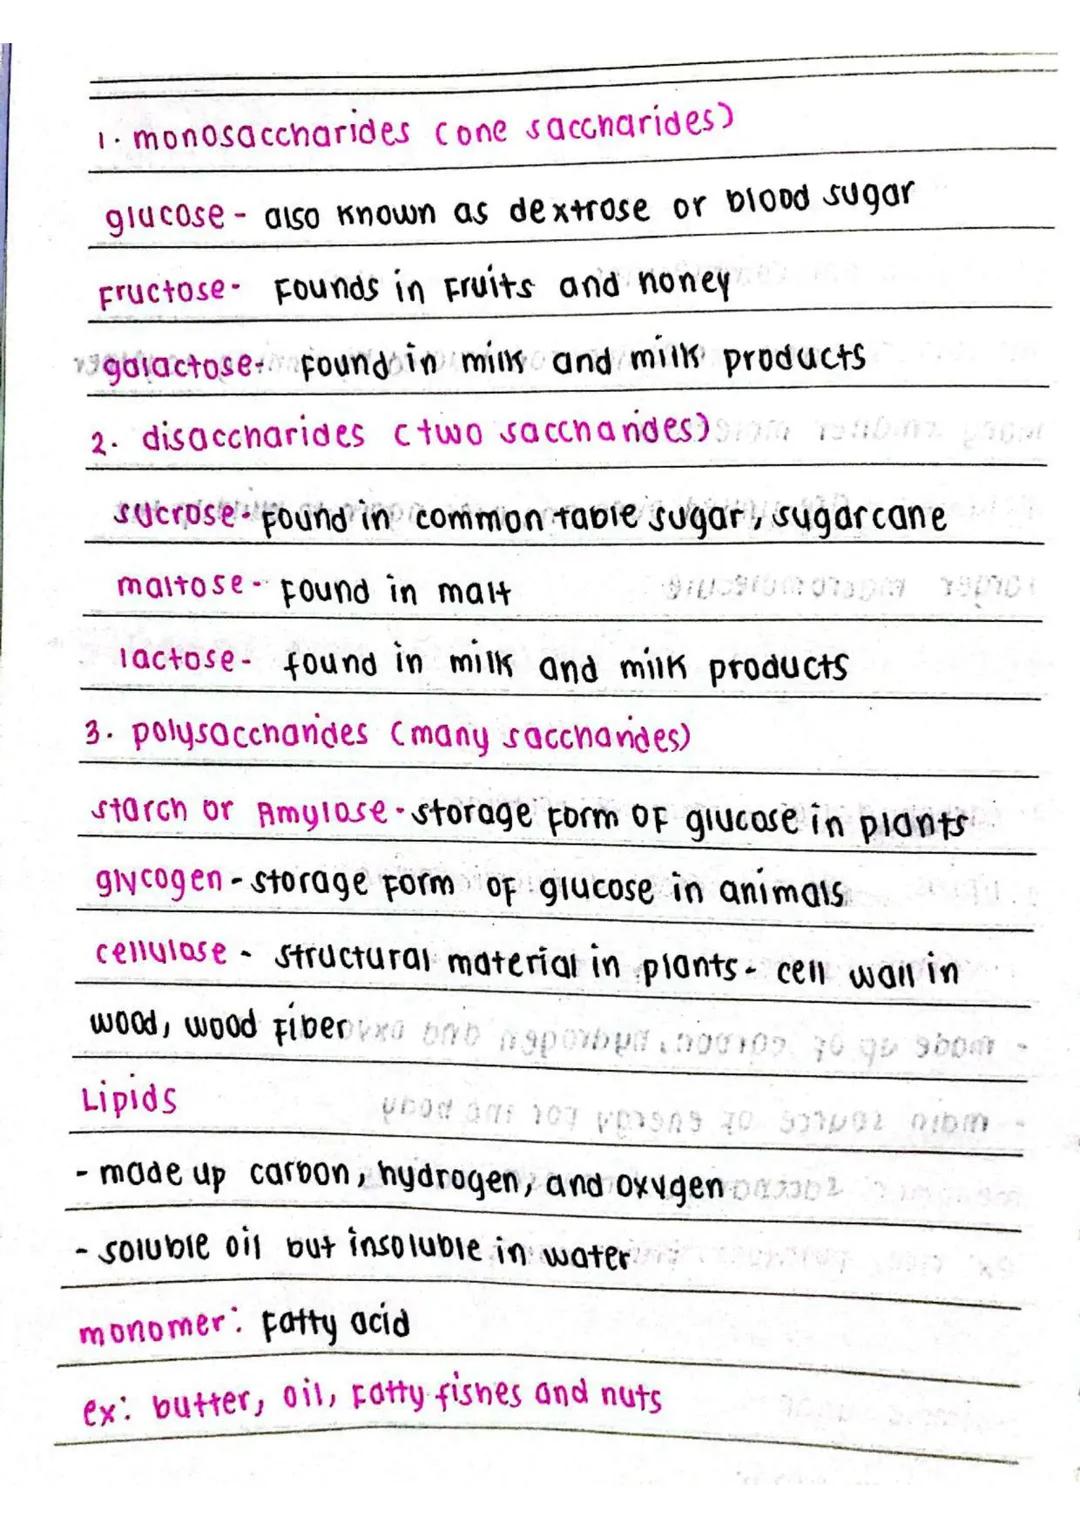 1. monosaccharides (one saccharides)
glucose - also known as dextrose or blood sugar
Fructose - Founds in Fruits and honey
galactose - Found in milk and milk products
2. disaccharides (two saccharides)
sucrose - Found in common table sugar, sugarcane
maltose - Found in malt
lactose - found in milk and milk products
3. polysaccharides (many saccharides)
starch or Amylose - storage Form OF glucose in plants
glycogen - storage Form OF glucose in animals
cellulose - structural material in plants - cell wall in
wood, wood Fiber
Lipids
- made up carbon, hydrogen, and oxygen
- soluble oil but insoluble in water
monomer: Fatty acid
ex: butter, oil, Fatty fishes and nuts